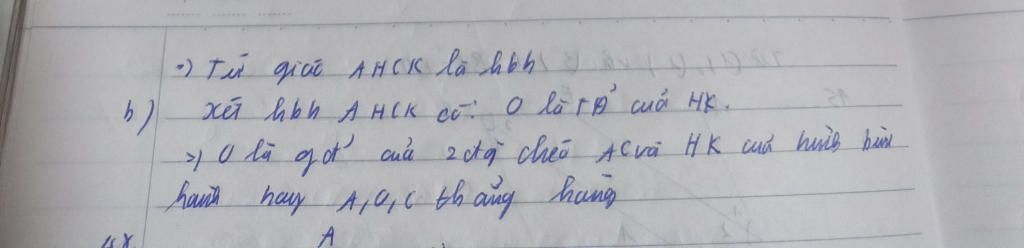 =) Tứ giác AHCK là hbh
b) Xét hbh AHCK có: O là TĐ' của HK.
=) O là gđ' của 2 đg chéo AC và HK của hình bình
hành hay A, O, C thẳng hàng
A